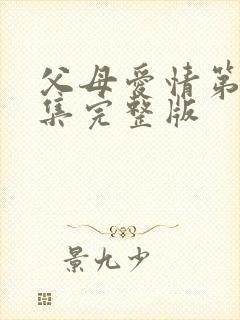 父母爱情第
集完整版
景九少